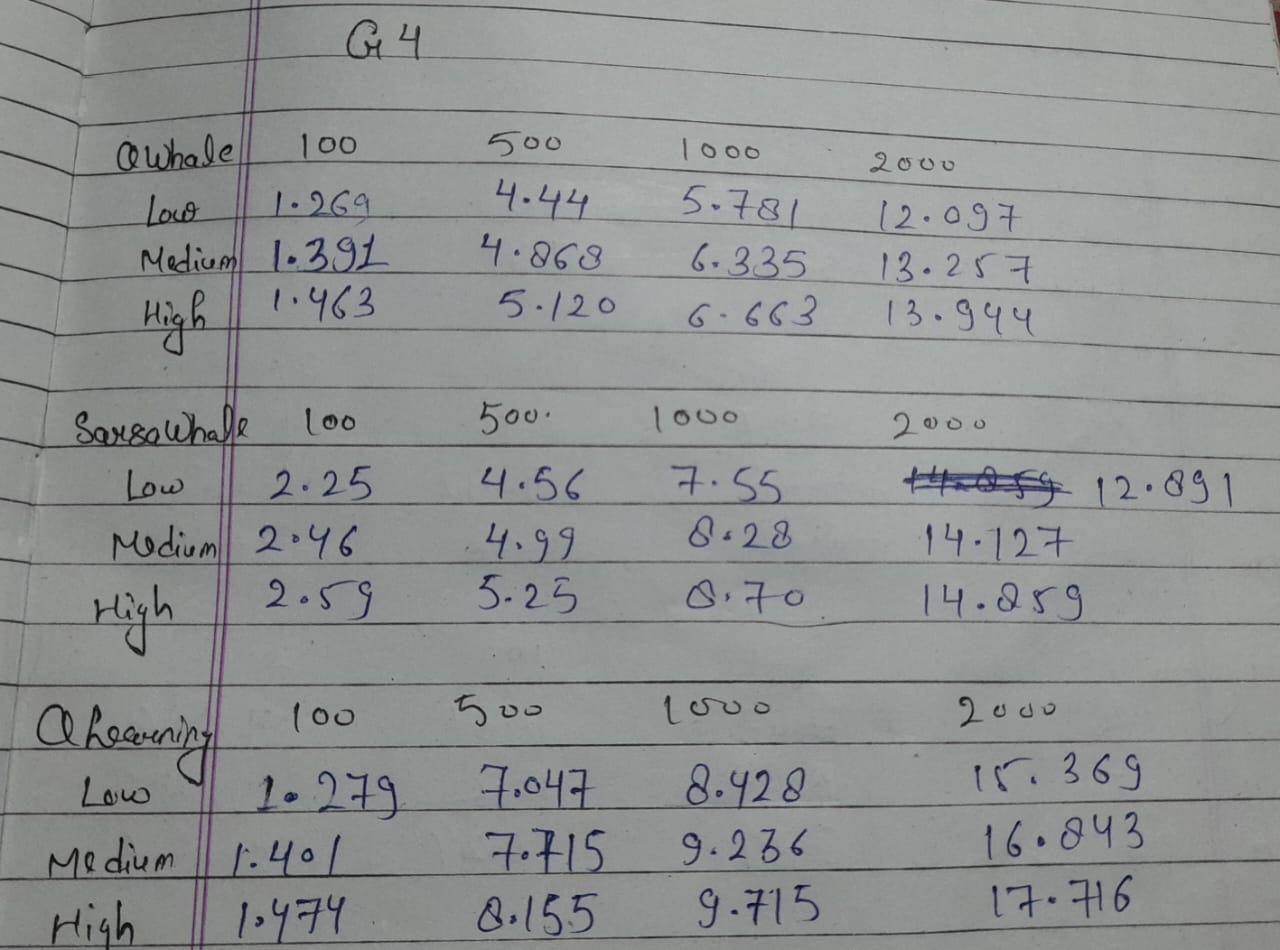 G4
QWhale 100 500 1000 2000
Low 1.269 4.44 5.781 12.097
Medium 1.391 4.868 6.335 13.257
High 1.463 5.120 6.663 13.944
SarsaWhale 100 500. 1000 2000
Low 2.25 4.56 7.55 14.859 12.891
Medium 2.46 4.99 8.28 14.127
High 2.59 5.25 8.70 14.859
QLearning 100 500 1000 2000
Low 1.279 7.047 8.428 15.369
Medium 1.401 7.715 9.236 16.843
High 1.474 8.155 9.715 17.716